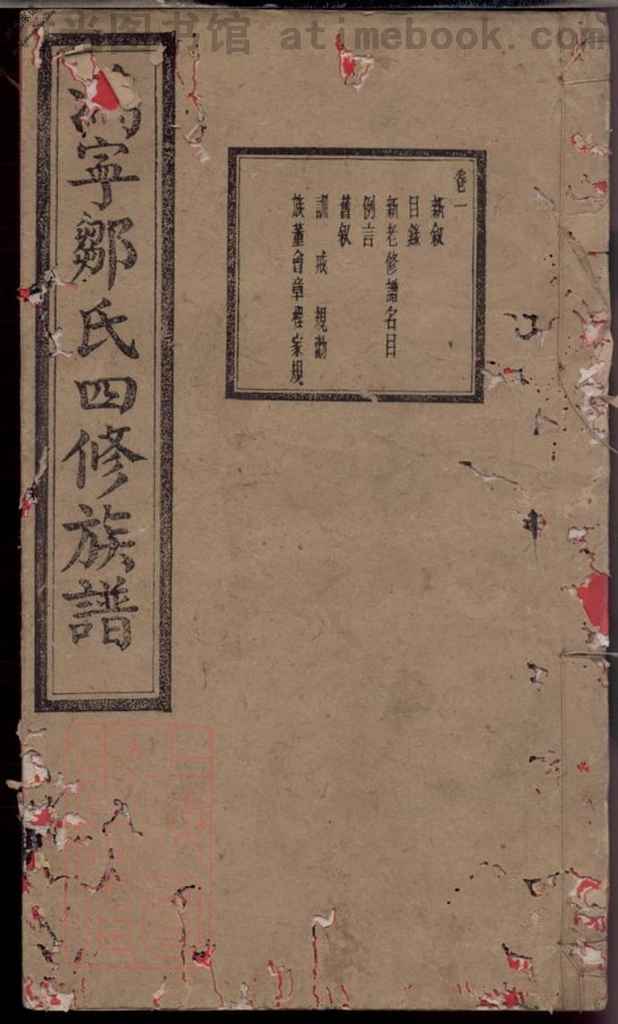 时光图书馆 atimebook.com
卷一
新叙
目錄
新老修譜名目
例言
舊叙
訓 戒 規勸
族董會章程家規
寧鄒氏四修族譜